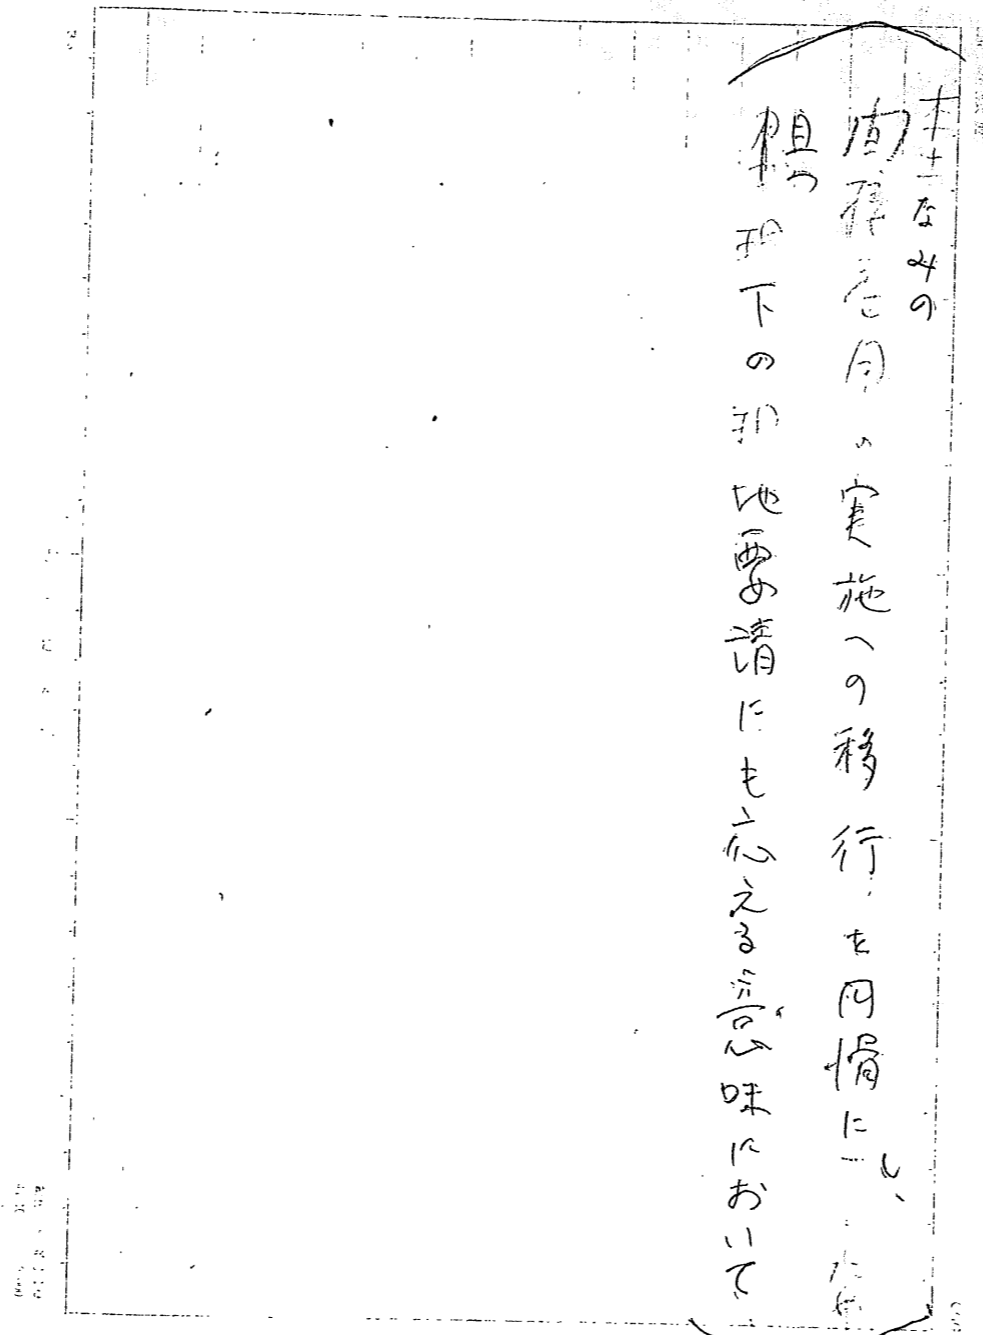 本土なみの
直接適用の実施への移行を円滑にし、
且つ
現下の現地要請にも応える意味において